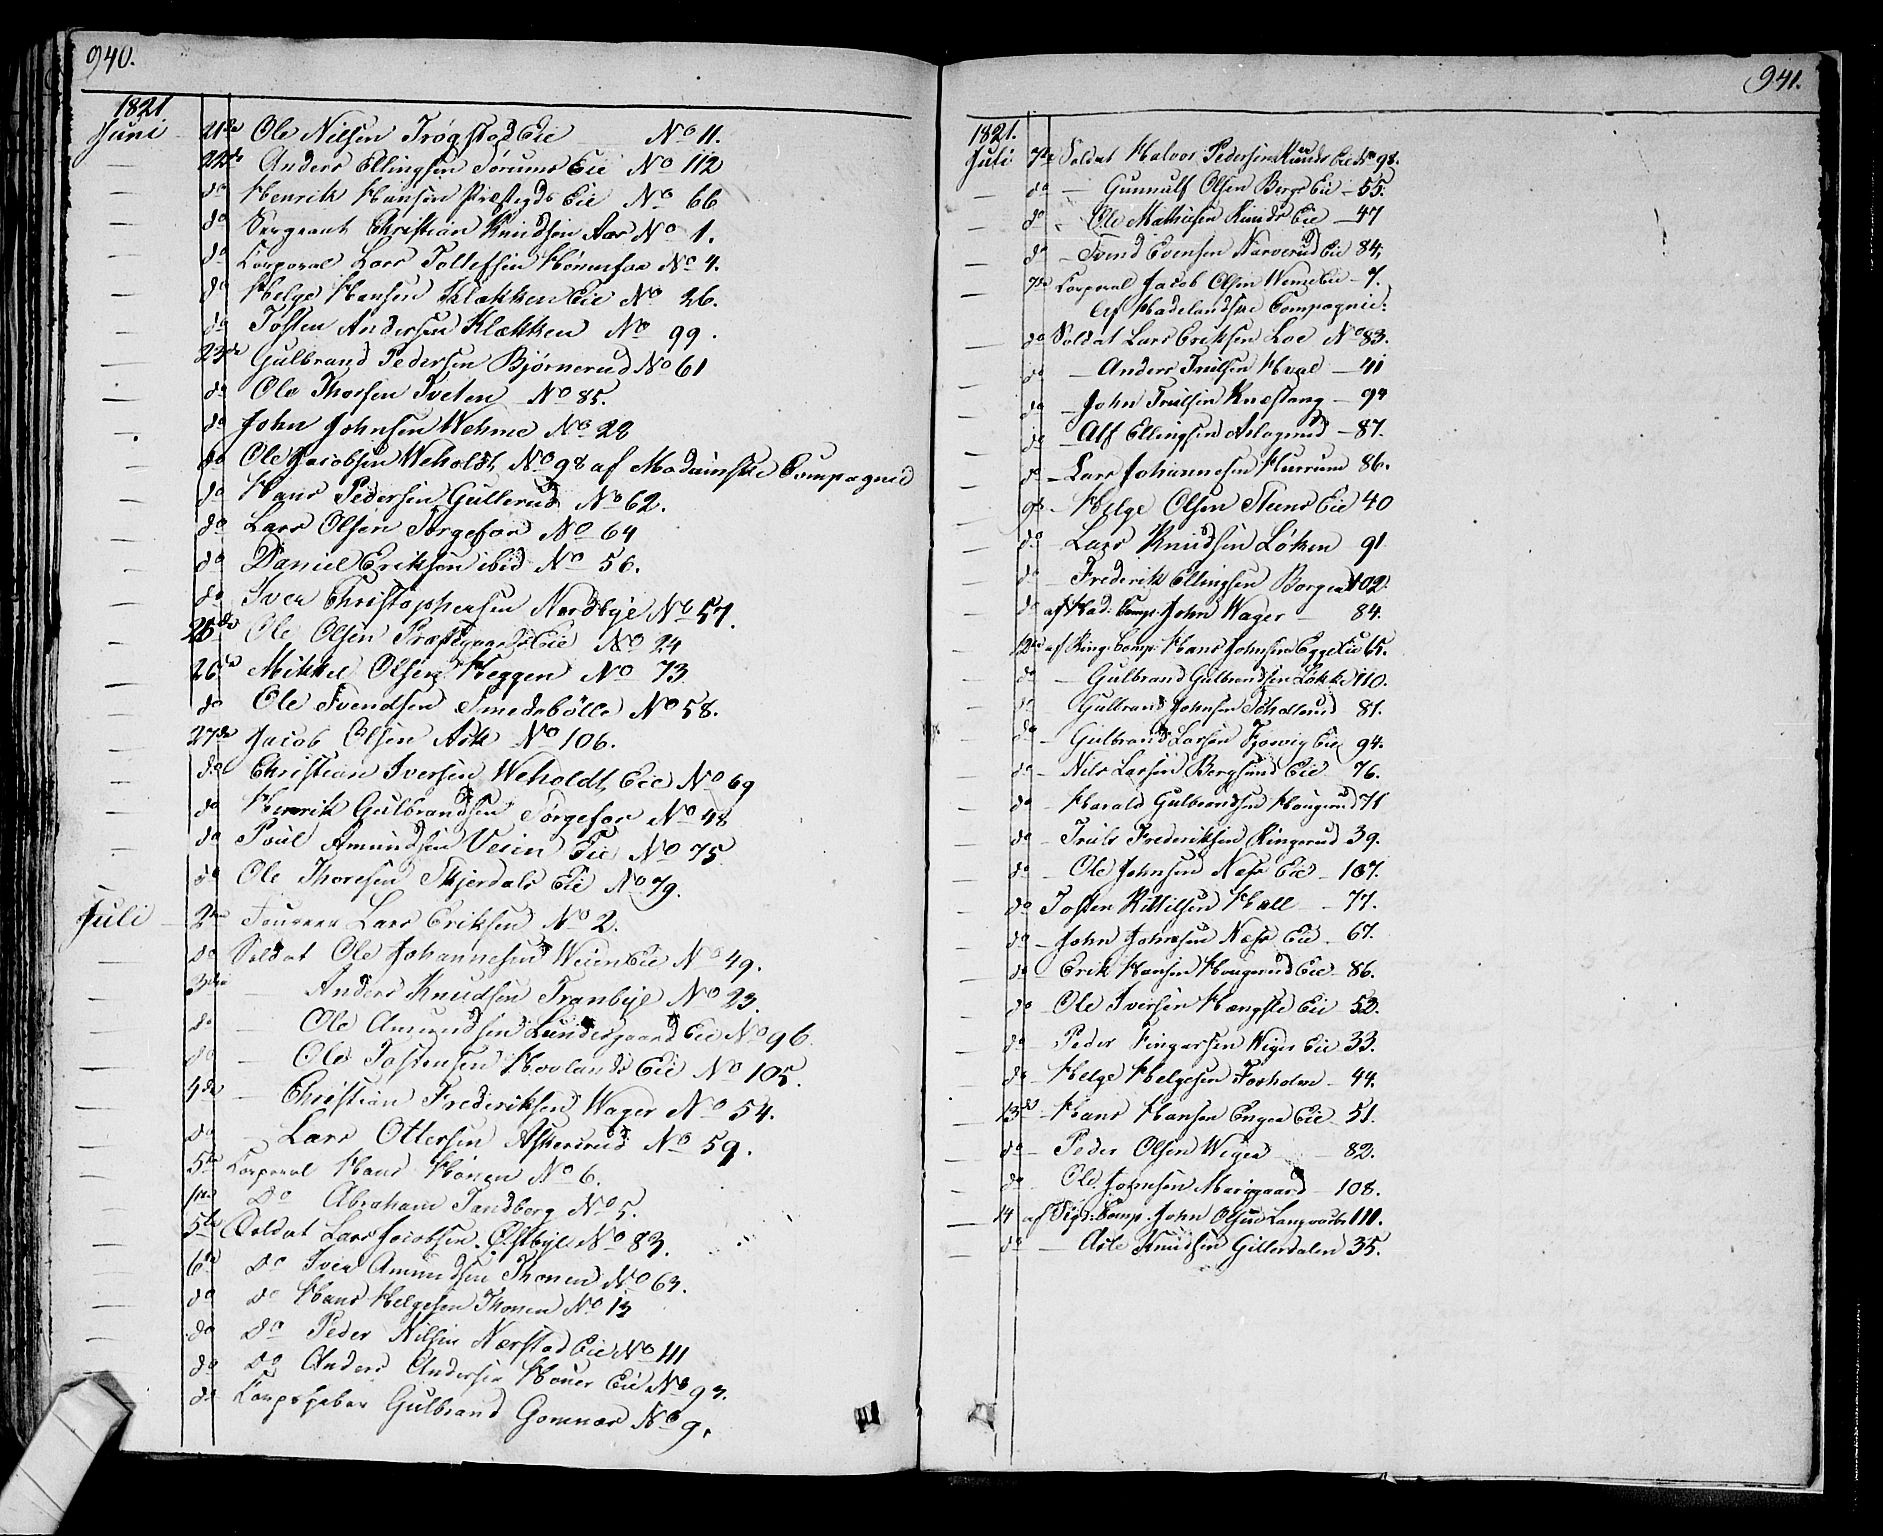 940.
1821
Juni 21de Ole Nilsen Trøgstad Eie No 11.
22de Anders Ellingsen Sørums Eie No 112
do Henrik Hansen Præstegds Eie No 66
do Sergeant Christian Knudsen Aas No 1.
do Corporal Lars Tollefsen Hønnefos No 4.
do Helge Hansen Klækken Eie No 26.
do Tosten Andersen Klækken No 99.
23de Gulbrand Pedersen Bjørnerud No 61
do Ole Thorsen Tveten No 85.
do John Johnsen Wehme No 28
do Ole Jacobsen Weholdt No 98 af Modumske Compagnie
do Hans Pedersen Gullerud No 62.
do Lars Olsen Torgefos No 64
do Daniel Eriksen ibid No 56.
do Iver Christophersen Nordbye No 57.
25de Ole Olsen Præstgaards Eie No 24
26de Mikkel Olsen Heggen No 73
do Ole Svendsen Smedsbølle No 58.
27de Jacob Olsen Ask No 106.
do Christian Iversen Weholdt Eie No 69
do Henrik Gulbrandsen Torgefos No 48
do Poul Amundsen Veien Eie No 75
do Ole Thoresen Skjerdals Eie No 79.
Juli 2den Lars Eriksen No 2.
do Soldat Ole Johannesen Weien Eie No 49.
3die — Anders Knudsen Tranbye No 23.
do — Ole Amundsen Lundesgaard Eie No 96
do — Ole Tostensen Hovlands Eie No 105.
4de — Christian Frederiksen Wager No 54.
do — Lars Ottersen Askersrud No 59.
5te Corporal Hans Hønen No 6.
do Abraham Sandberg No 5.
5te Soldat Lars Jacobsen Østbye No 83.
6te do Iver Amundsen Thonen No 63.
do do Hans Helgesen Thonen No 13
do do Peder Nilsen Nærstad Eie No 111
do do Anders Andersen Eie No 93.
do Gulbrand Gomnæs No 9.
941.
1821.
Juli 7de Soldat Halvor Pedersen Eie No 98.
do — Gunnulf Olsen Bergs Eie — 55.
do — Ole Mathisen Eie — 47
do — Svend Evensen Narverud Eie 84,
7de Corporal Jacob Olsen Eie — 7.
Af Hadelandske Compagnie:
do Soldat Lars Eriksen Loe No 83.
do — Anders Trulsen Hval — 41
do — John Trulsen Knæstang — 94
do — Alf Ellingsen Aslagrud — 87.
do — Lars Johannesen Hurrum 86.
9de — Helge Olsen Steens Eie 40
do — Lars Knudsen Løken 91
do — Frederik Ellingsen Borgen 102.
do af Had: Comp. John Wager — 84.
12te af Ring: Comp: Hans Johnsen Egge Eie 65.
do — Gulbrand Gulbrandsen Løkke 110.
do Gulbrand Johnsen 81.
do — Gulbrand Larsen Eie 94.
do — Nils Larsen Bergsund Eie 76.
do — Harald Gulbrandsen Hougerud 71
do — Truls Frederiksen Ringerud 39.
do — Ole Johnsen Næss Eie — 107.
do Tosten Kittilsen Hall — 77.
do — John Johnsen Næss Eie — 67.
do Erik Hansen Hougerud Eie — 86.
do — Ole Iversen Hængsle Eie 52.
do — Peder Fingarsen Wiger Eie 33.
do — Helge Helgesen Fosholm — 44.
13de — Hans Hansen Enger Eie — 51.
do — Peder Olsen Wiger — 82.
do Ole Johnsen Moeggaard — 108.
14 af Sigd: Comp. John Olsen 111.
do — Asle Knudsen Gillerdalen 35.